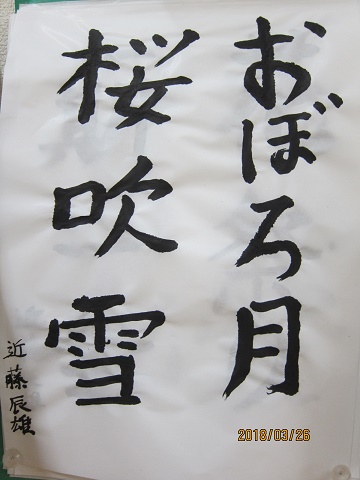 おぼろ月
桜吹雪
近藤辰雄
2018/03/26